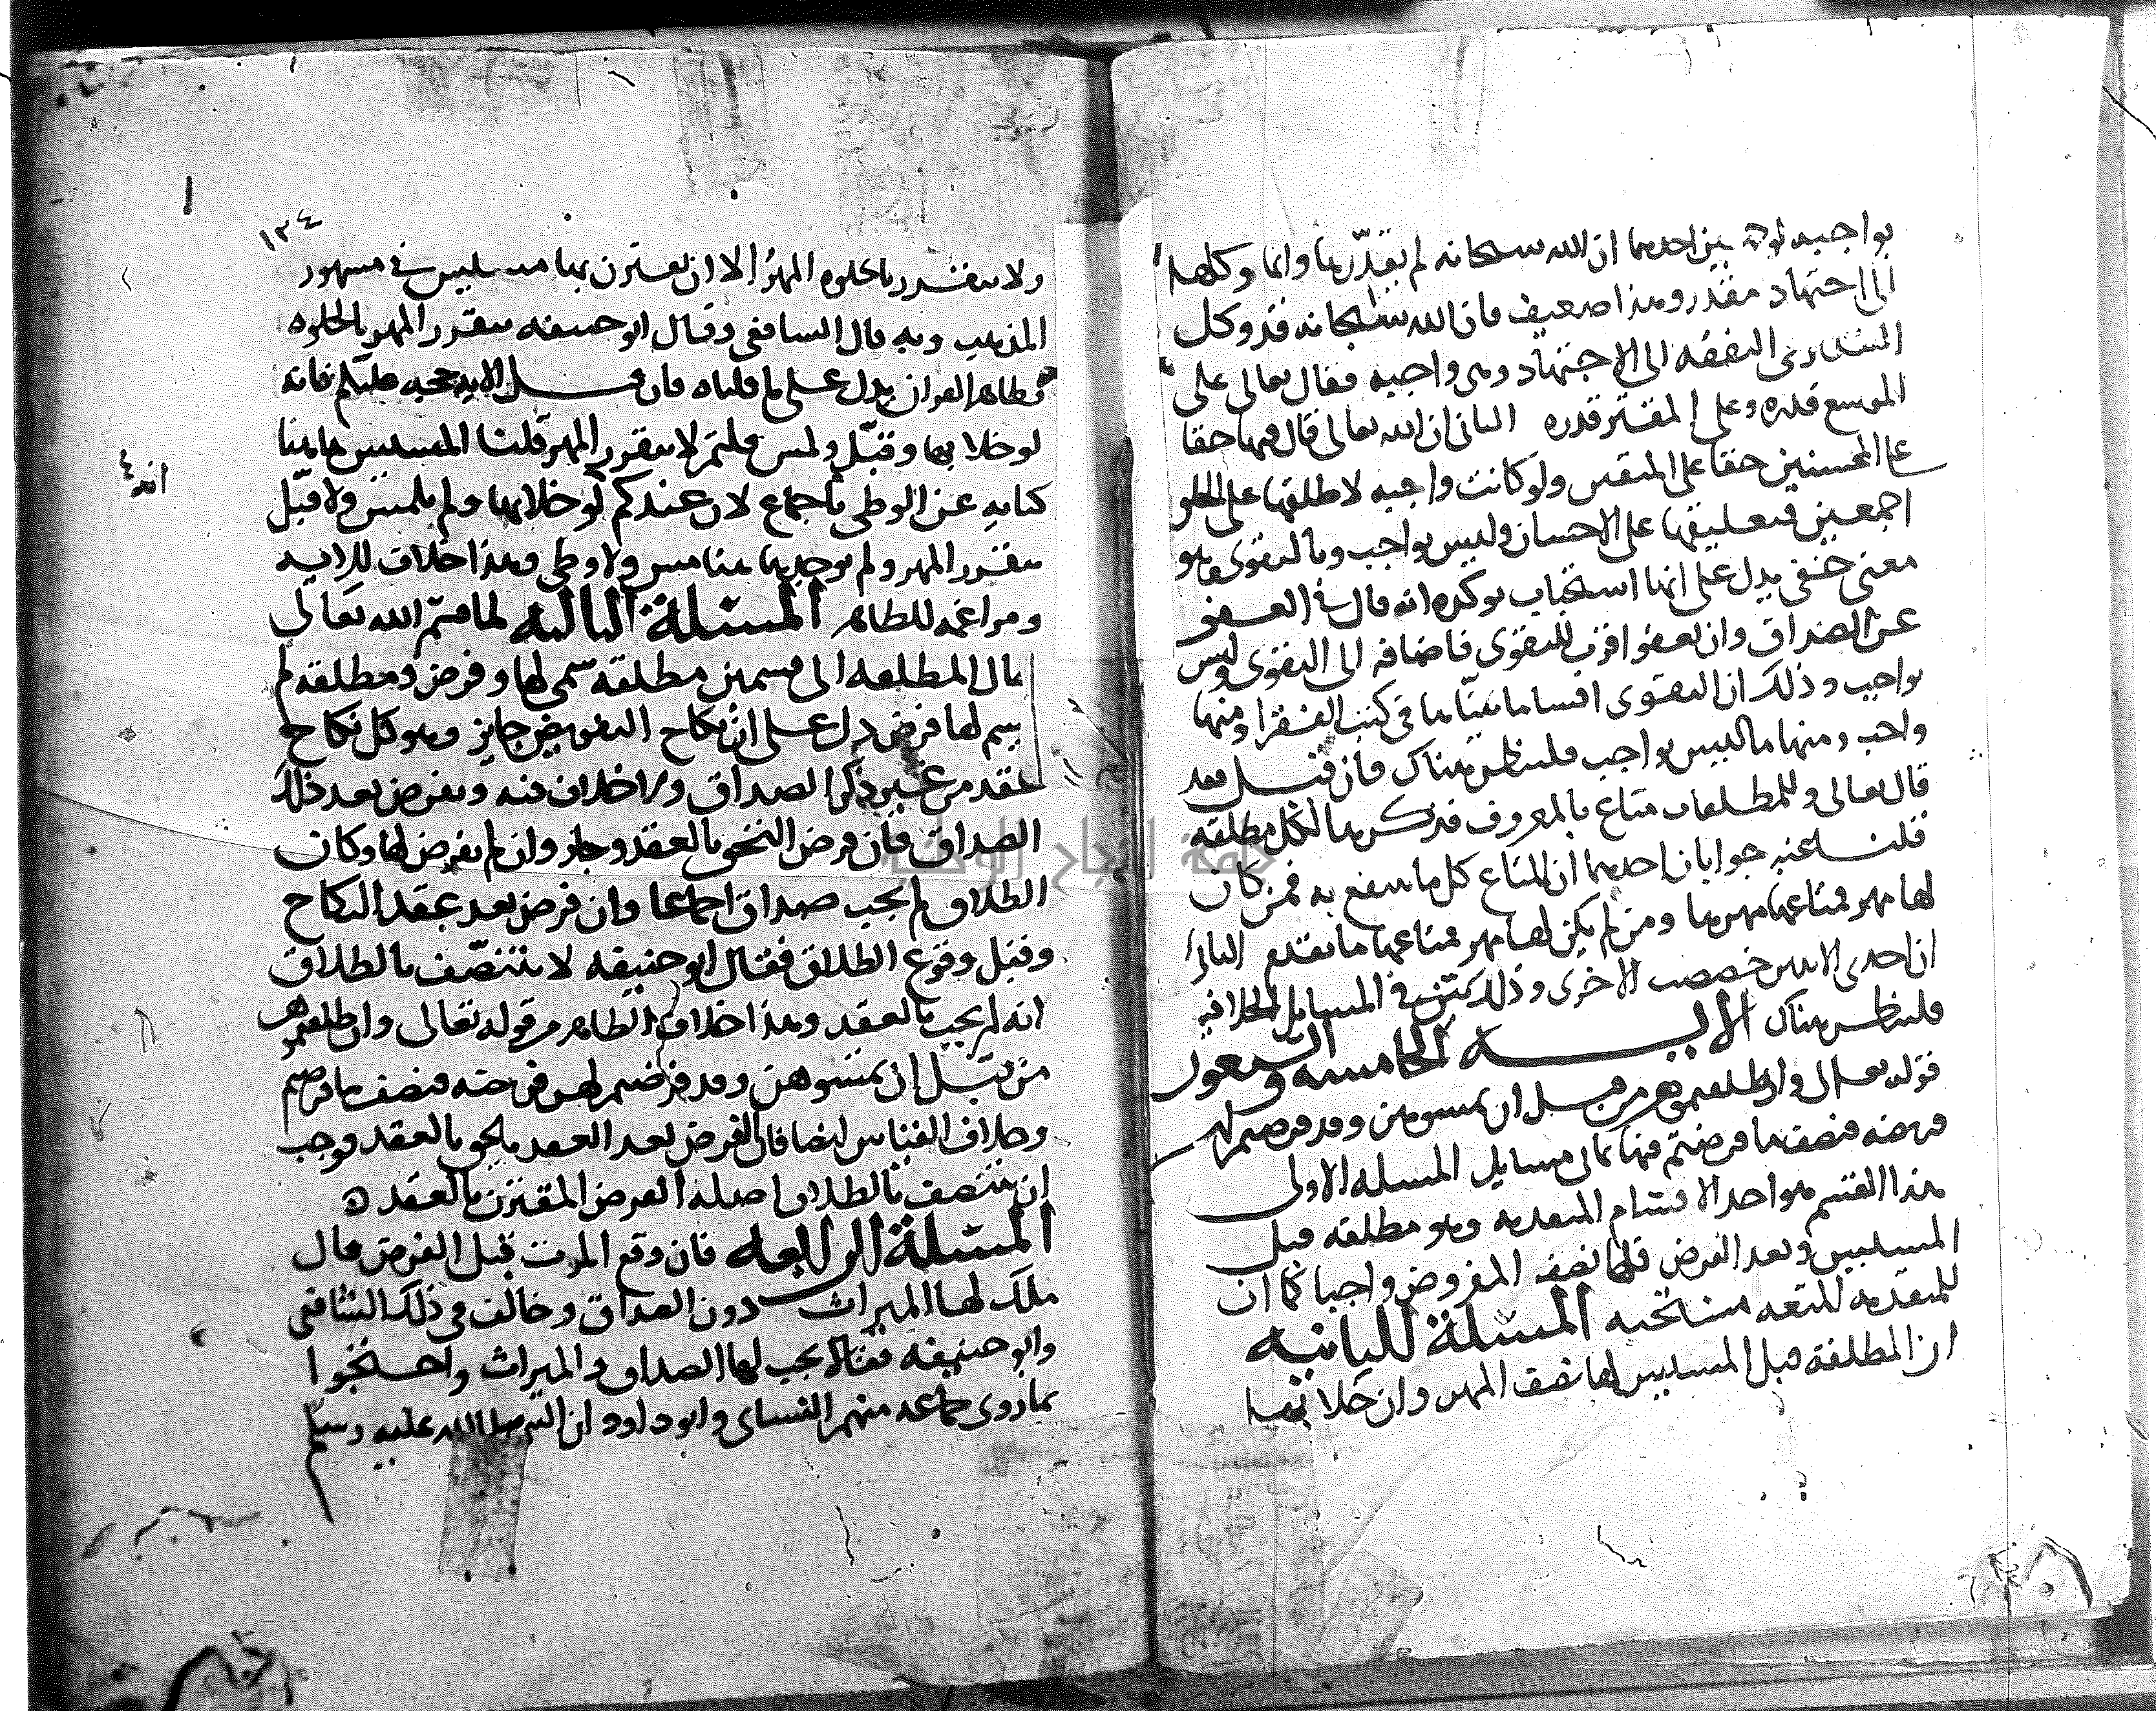 بواجبه لوجهين احدهما ان الله سبحانه لم يقدّرها وانما وكلها
الى اجتهاد مقدر وهذا ضعيف فان الله سبحانه قد وكل
التقدير في النفقه الى الاجتهاد وهي واجبه فقال تعالى على
الموسع قدره وعلى المقتر قدره الثاني ان الله تعالى قال فيها حقا
على المحسنين حقا على المتقين ولو كانت واجبه لاطلقها على الخلق
اجمعين فتعليقها على الاحسان وليس بواجب وبالتقوى وهو
معنى خفي يدل على انها استحباب يوكده انه قال في العفو
عن الصداق وان تعفوا اقرب للتقوى فاضافه الى التقوى وليس
بواجب وذلك ان التقوى اقساما بيناها في كتب الفقرا ومنها
واجب ومنها ما ليس بواجب فلينظر هناك فان قيل فقد
قال تعالى وللمطلقات متاع بالمعروف فذكرها لكل مطلقه
قلنا عنه جوابان احدهما ان المتاع كل ما ينتفع به فمن كان
لها مهر فمتاعها مهرها ومن لم يكن لها مهر فمتاعها ما تقدم الثاني
ان احدى الايتين خصصت الاخرى وذلك مبين في المسايل الخلافيه
فلينظر هناك الايه الخامسه والسبعون
قوله تعالى وان طلقتموهن من قبل ان تمسوهن وقد فرضتم لهن
فريضه فنصف ما فرضتم فيها ثماني مسايل المسله الاولى
هذا القسم هو احد الاقسام المتقدمه وهو مطلقه قبل
المسيس وبعد الفرض فلها نصف المفروض واجبا كما ان
للمتقدمه المتعه مستحبه المسئلة الثانيه
ان المطلقة قبل المسيس لها نصف المهر وان خلا بها
١٣٤
ولا يتقرر بالخلوه المهر الا ان يقترن بها مسيس في مشهور
المذهب وبه قال الشافعي وقال ابو حنيفه يتقرر المهر بالخلوه
وظاهر القران يدل على ما قلناه فان قيل الايه حجه عليكم فانه
لو خلا بها وقبّل ولمس قلتم لا يتقرر المهر قلنا المسيس هاهنا
كنايه عن الوطي باجماع لان عندكم لو خلا بها ولم يلمس ولا قبّل
انه
يتقرر المهر ولم يوجد هاهنا مس ولا وطي وهذا خلاف للايه
ومراغمه للظاهر المسئلة الثالثه لما قسّم الله تعالى
حال المطلقه الى قسمين مطلقة سمى لها وفرض ومطلقه لم
يسم لها فرض دل على ان نكاح التفويض جايز وهو كل نكاح
عقد من غير ذكر الصداق ولا خلاف فيه ويفرض بعد ذلك
الصداق فان فرض التحق بالعقد وجاز وان لم يفرض لها وكان
الطلاق لم يجب صداق اجماعا وان فرض بعد عقد النكاح
وقبل وقوع الطلاق فقال ابو حنيفه لا يتنصّف بالطلاق
انه لم يجب بالعقد وهذا خلاف الظاهر من قوله تعالى وان طلقتموهن
من قبل ان تمسوهن وقد فرضتم لهن فريضه فنصف ما فرضتم
وخلاف القياس ايضا فان الفرض بعد العقد يلحق بالعقد فوجب
ان يتنصف بالطلاق اصله الفرض المقترن بالعقد ه
المسئلة الرابعه فان وقع الموت قبل الفرض قال
ملك لها الميراث دون الصداق وخالف في ذلك الشافعي
وابو حنيفه فقالا يجب لها الصداق والميراث واحتجوا
بما روى جماعه منهم النساى وابو داود ان النبي صلى الله عليه وسلم
جامعة النجاح الوطنية